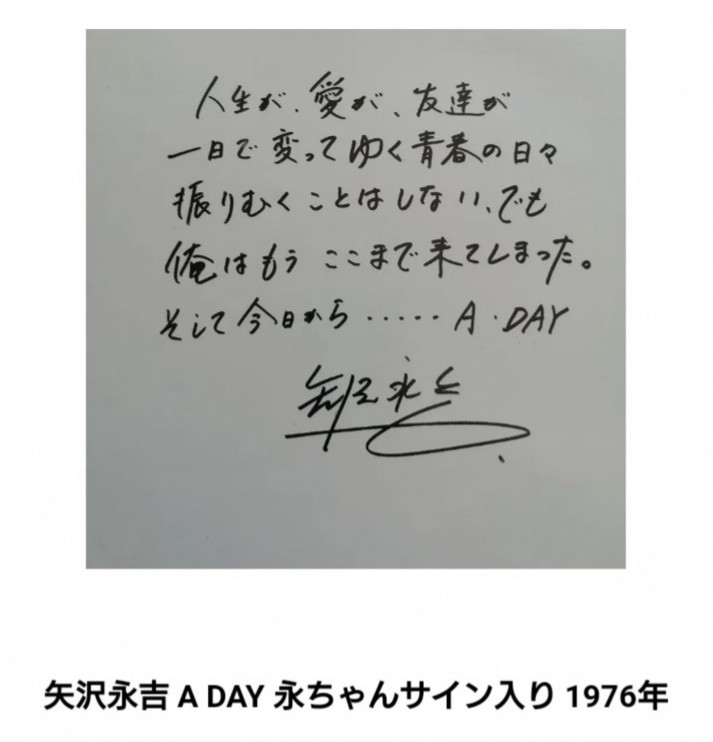 人生が、愛が、友達が
一日で変ってゆく青春の日々
振りむくことはしない、でも
俺はもう ここまで来てしまった。
そして今日から ‥‥‥ A・DAY
矢沢永吉
矢沢永吉 A DAY 永ちゃんサイン入り 1976年